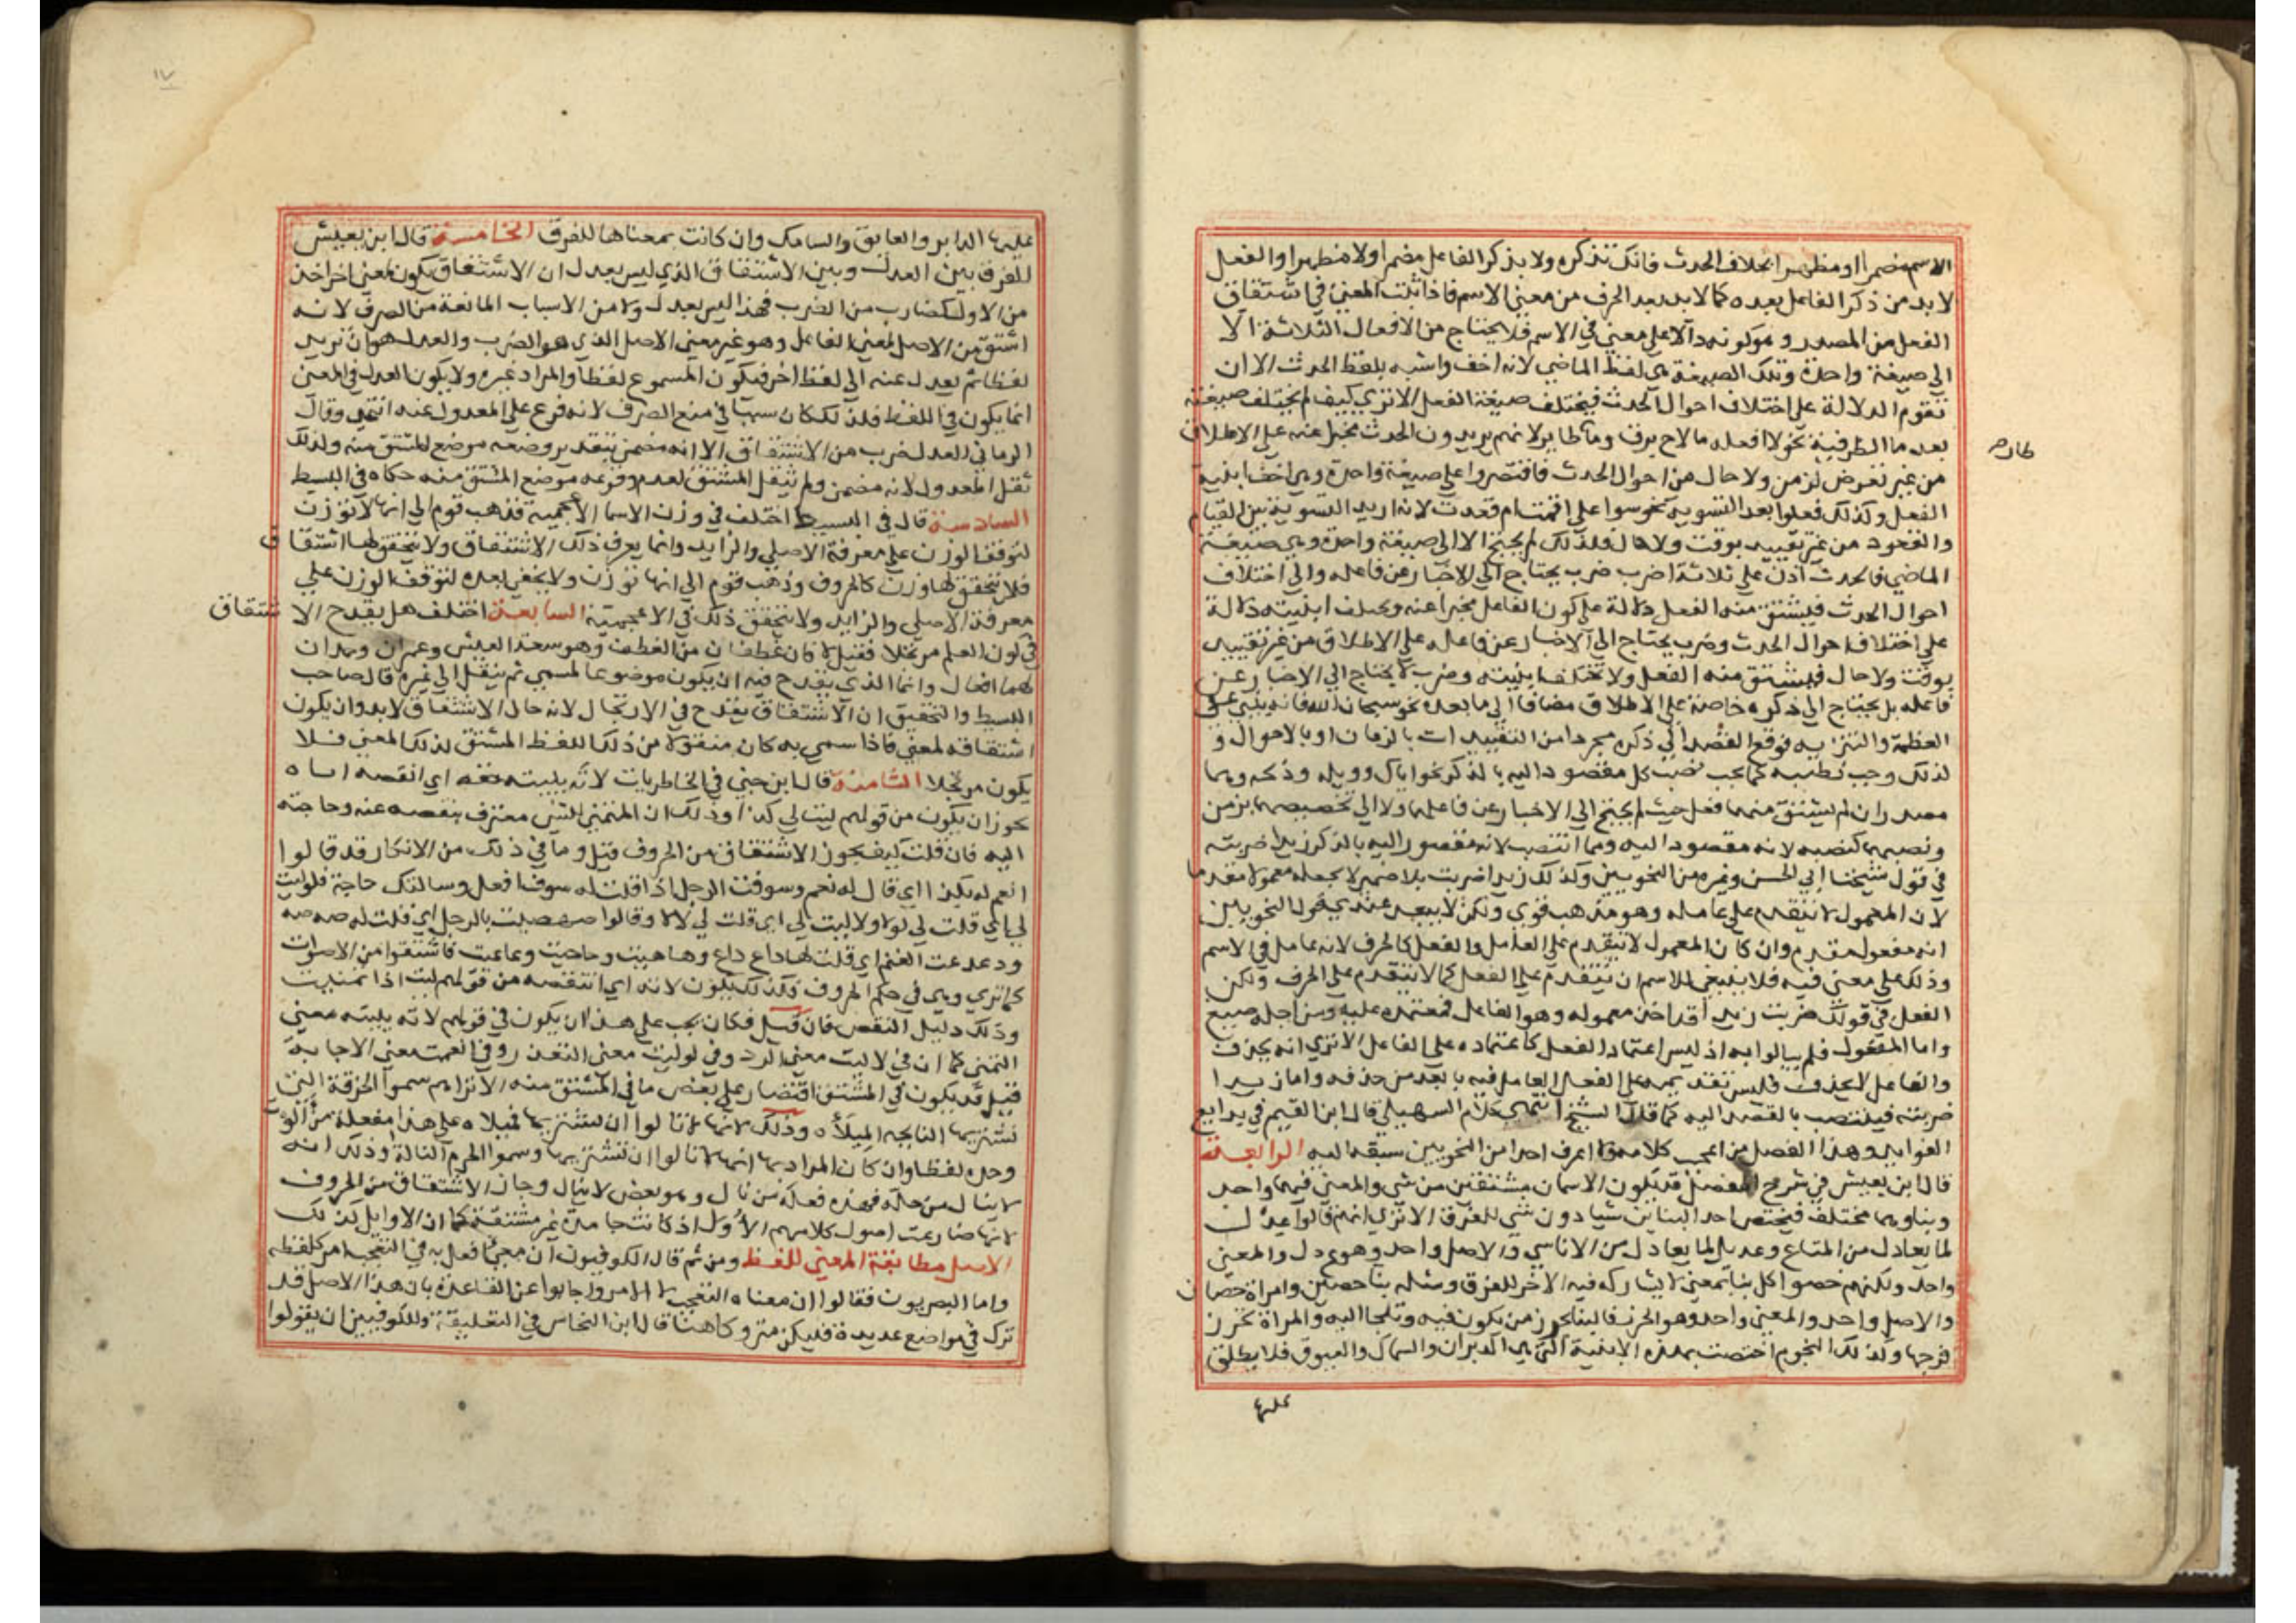 الاسم مضمرا او مظهرا بخلاف الحدث فانك تذكره ولا يذكر الفاعل مضمرا ولا مظهرا والفعل
لا بد من ذكر الفاعل بعده كما لا بد بعد الحرف من معنى الاسم فاذا ثبت المعنى في اشتقاق
الفعل من المصدر وهو كونه دالا على معنى في الاسم فلا يحتاج من الافعال الثلاثة الا
الى صيغة واحدة وتلك الصيغة هي لفظ الماضي لانه اخف واشبه بلفظ الحدث الا ان
تقوم الدلالة على اختلاف احوال الحدث فيختلف صيغة الفعل الا ترى كيف لم يختلف صيغته
بعد ما الظرفية نحو لا افعله ما لاح برق وما طا ير لانهم يريدون الحدث مخبرا عنه على الاطلاق
طار صح
من غير تعرض لزمن ولا حال من احوال الحدث فاقتصروا على صيغة واحدة وهي اخف ابنية
الفعل وكذلك فعلوا بعد التسوية نحو سوا على اقمت ام قعدت لانه اريد التسوية بين القيام
والقعود من غير تقييد بوقت ولا حال فلذلك لم يحتج الا الى صيغة واحدة وهي صيغة
الماضي فالحدث اذن على ثلاثة اضرب ضرب يحتاج الى الاخبار عن فاعله والى اختلاف
احوال الحدث فيشتق منه الفعل دلالة على كون الفاعل مخبرا عنه ويختلف ابنيته دلالة
على اختلاف احوال الحدث وضرب يحتاج الى الاخبار عن فاعله على الاطلاق من غير تقييد
بوقت ولا حال فيشتق منه الفعل ولا تختلف ابنيته وضرب لا يحتاج الى الاخبار عن
فاعله بل يحتاج الى ذكره خاصة على الاطلاق مضافا الى ما بعده نحو سبحان الله فانه ينبي عن
العظمة والتنزيه فوقع القصد الى ذكره مجردا من التقييدات بالزمان او بالاحوال و
لذلك وجب نصبه كما يجب نصب كل مقصود اليه بالذكر نحو اياك وويله وويحه وهما
مصدران لم يشتق منهما فعل حيث لم يحتج الى الاخبار عن فاعلهما ولا الى تخصيصهما بزمن
ونصبهما كنصبه لانه مقصود اليه ومما انتصب لانه مقصور اليه بالذكر زيدا ضربته
في قول شيخنا ابي الحسن وغيره من النحويين وكذلك زيدا ضربت بلا ضمير لا يجعله معمولا مقدما
لان المعمول لا يتقدم على عامله وهو مذهب قوي ولكن لا يبعد عندي قول النحويين
انه مفعول مقدم وان كان المعمول لا يتقدم على العامل والفعل كالحرف لانه عامل في الاسم
وذلك على معنى فيه فلا ينبغي للاسم ان يتقدم على الفعل كما لا يتقدم على الحرف ولكن
الفعل في قولك ضربت زيدا قد اخذ معموله وهو الفاعل فمعتمده عليه ومن اجله صيغ
واما المفعول فلم يبالوا به اذ ليس اعتماد الفعل كاعتماده على الفاعل الا ترى انه يحذف
والفاعل لا يحذف فليس تقديمه على الفعل العامل فيه بابعد من حذفه واما زيدا
ضربته فينتصب بالقصد اليه كما قال الشيخ انتهى كلام السهيلي قال ابن القيم في بدايع
الفوايد وهذا الفصل من اعجب كلامه ولم اعرف احدا من النحويين سبقه اليه الرابعة
قال ابن يعيش في شرح المفصل قد يكون الاسمان مشتقين من شي والمعنى فيهما واحد
وبناوهما مختلف فيختص احد البناين شيا دون شي للفرق الا ترى انهم قالوا عدل
لما يعادل من المتاع وعديل لما يعادل من الاناسي والاصل واحد وهو ع د ل والمعنى
واحد ولكنهم خصوا كل بنا بمعنى لا يشاركه فيه الاخر للفرق ومثله بنا حصين وامراة حصان
والاصل واحد والمعنى واحد وهو الحرز فالبنا يحرز من يكون فيه وتلجا اليه والمراة تحرز
فرجها وكذلك النجوم اختصت بهذه الابنية التي هي الدبران والسماك والعيوق فلا يطلق
عليها
١٧
عليها الدابر والعايق والسامك وان كانت بمعناها للفرق الخامسة قال ابن يعيش
الفرق بين العدل وبين الاشتقاق الذي ليس بعدل ان الاشتقاق يكون لمعنى اخر اخذ
من الاول كضارب من الضرب فهذا ليس بعدل ولا من الاسباب المانعة من الصرف لانه
اشتق من الاصل لمعنى الفاعل وهو غير معنى الاصل الذي هو الضرب والعدل هو ان تريد
لفظا ثم يعدل عنه الى لفظ اخر فيكون المسموع لفظا والمراد غيره ولا يكون العدل في المعنى
انما يكون في اللفظ فلذلك كان سببا في منع الصرف لانه فرع على المعدول عنه انتهى وقال
الرماني العدل ضرب من الاشتقاق الا انه مضمن بتقدير وضعه موضع المشتق منه ولذلك
ثقل المعدول لانه مضمن ولم يثقل المشتق لعدم وقوعه موضع المشتق منه حكاه في البسيط
السادسة قال في البسيط اختلف في وزن الاسما الاعجمية فذهب قوم الى انها لا توزن
لتوقف الوزن على معرفة الاصلي والزايد وانما يعرف ذلك بالاشتقاق ولا يتحقق لها اشتقاق
فلا يتحقق لها وزن كالحروف وذهب قوم الى انها توزن ولا يخفى بعده لتوقف الوزن على
معرفة الاصلي والزايد ولا يتحقق ذلك في الاعجمية السابعة اختلف هل يقدح الاشتقاق
في كون العلم مرتجلا فقيل لا كان غطفان من الغطف وهو سعة العيش وعمران وحمدان
لهما افعال وانما الذي يقدح فيه ان يكون موضوعا لمسمى ثم ينقل الى غيره قال صاحب
البسيط والتحقيق ان الاشتقاق يقدح في الارتجال لانه حال الاشتقاق لا بد وان يكون
اشتقاقه لمعنى فاذا سمي به كان منقولا من ذلك اللفظ المشتق لذلك المعنى فلا
يكون مرتجلا الثامنة قال ابن جني في الخاطريات لاته يليته حقه اي انقصه اياه
يجوز ان يكون من قولهم ليت لي كذا وذلك ان المتمني للشي معترف بنقصه عنه وحاجته
اليه فان قلت كيف يجوز الاشتقاق من الحروف قيل وما في ذلك من الانكار قد قالوا
انعم له بكذا اي قال له نعم وسوفت الرجل اذا قلت له سوف افعل وسالتك حاجة فلوليت
لي اي قلت لي لولا ولاليت لي اي قلت لي لا لا وقالوا صهصيت بالرجل اي قلت له صه صه
ودعدعت الغنم اي قلت لها داع داع وهاهيت وحاحيت وعاعيت فاشتقوا من الاصوات
كما ترى وهي في حكم الحروف فكذلك يكون لاته اي انتقصه من قولهم ليت اذا تمنيت
وذلك دليل النقص فان قيل فكان يجب على هذا ان يكون في قولهم لاته يليته معنى
التمني كما ان في لاليت معنى الرد وفي لوليت معنى التعذر وفي انعمت معنى الاجابة
قيل قد يكون في المشتق اقتصار على بعض ما في المشتق منه الا تراهم سموا الخرقة التي
تشتر بها النايحة الميلاه وذلك لانها لا تالوا ان تشتر بها فميلاه على هذا مفعلة من الوت
وحده لفظا وان كان المراد بها انها لا تالوا ان تشتر بها وسموا الحرم النالة وذلك انه
لا ينال من حله فهذه فعلة من نال وهو بعض لا ينال وجاز الاشتقاق من الحروف
لانها ضارعت اصول كلامهم الاول اذ كانت جامدة غير مشتقة كما ان الاوايل كذلك
الاصل مطابقة المعنى للفظ ومن ثم قال الكوفيون ان معنى افعل به في التعجب امر كلفظه
واما البصريون فقالوا ان معناه التعجب لا الامر واجابوا عن القاعدة بان هذا الاصل قد
ترك في مواضع عديدة فليكن متروكا هنا قال ابن النحاس في التعليقة وللكوفيين ان يقولوا